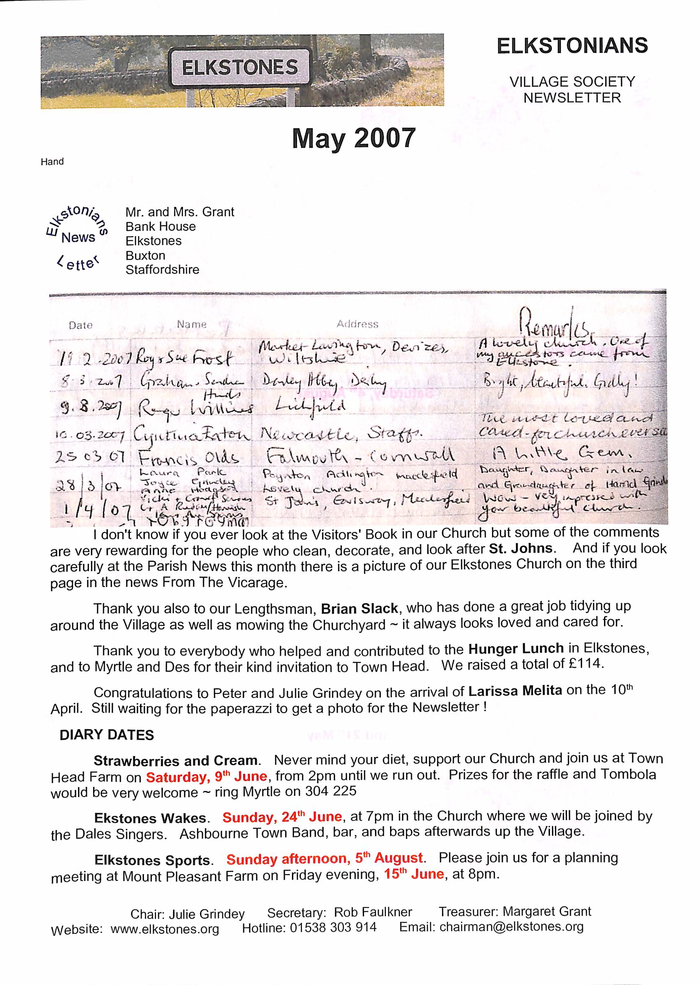 ELKSTONES
ELKSTONIANS
VILLAGE SOCIETY
NEWSLETTER
May 2007
Hand
Elkstonians
News
Letter
Mr. and Mrs. Grant
Bank House
Elkstones
Buxton
Staffordshire
Date Name Address Remarks
19.2.2007 Roy & Sue Frost Market Lavington, Devizes, Wiltshire A lovely church. One of my ancestors came from Elkstone.
8.3.2007 Graham, Sandra Hinds Darley Abbey Derby Bright, beautiful, Godly!
9.8.2007 Roger Williams Lichfield
10.03.2007 Cynthia Eaton Newcastle, Staffs. The most loved and cared-for church ever
25 03 07 Francis Olds Falmouth - Cornwall A Little Gem.
28/3/07 Laura Park Joyce Grindey Anne Poynton Adlington macclesfield Lovely church. Daughter, Daughter in law and Grandaughter of Harold
1/4/07 St Johns, Macclesfield Wow - very impressed with your beautiful church.
I don't know if you ever look at the Visitors' Book in our Church but some of the comments
are very rewarding for the people who clean, decorate, and look after St. Johns. And if you look
carefully at the Parish News this month there is a picture of our Elkstones Church on the third
page in the news From The Vicarage.
Thank you also to our Lengthsman, Brian Slack, who has done a great job tidying up
around the Village as well as mowing the Churchyard ~ it always looks loved and cared for.
Thank you to everybody who helped and contributed to the Hunger Lunch in Elkstones,
and to Myrtle and Des for their kind invitation to Town Head. We raised a total of £114.
Congratulations to Peter and Julie Grindey on the arrival of Larissa Melita on the 10th
April. Still waiting for the paparazzi to get a photo for the Newsletter !
DIARY DATES
Strawberries and Cream. Never mind your diet, support our Church and join us at Town
Head Farm on Saturday, 9th June, from 2pm until we run out. Prizes for the raffle and Tombola
would be very welcome ~ ring Myrtle on 304 225
Ekstones Wakes. Sunday, 24th June, at 7pm in the Church where we will be joined by
the Dales Singers. Ashbourne Town Band, bar, and baps afterwards up the Village.
Elkstones Sports. Sunday afternoon, 5th August. Please join us for a planning
meeting at Mount Pleasant Farm on Friday evening, 15th June, at 8pm.
Chair: Julie Grindey Secretary: Rob Faulkner Treasurer: Margaret Grant
Website: www.elkstones.org Hotline: 01538 303 914 Email: chairman@elkstones.org